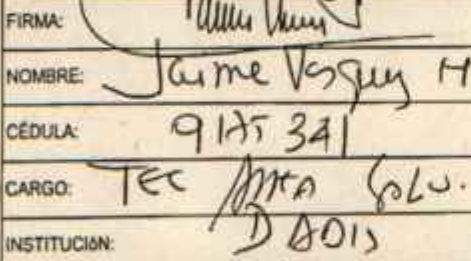 FIRMA:
NOMBRE: Jaime Vasquez M
CÉDULA: 9175341
CARGO: TEC AREA SALU.
INSTITUCIÓN: DADIS